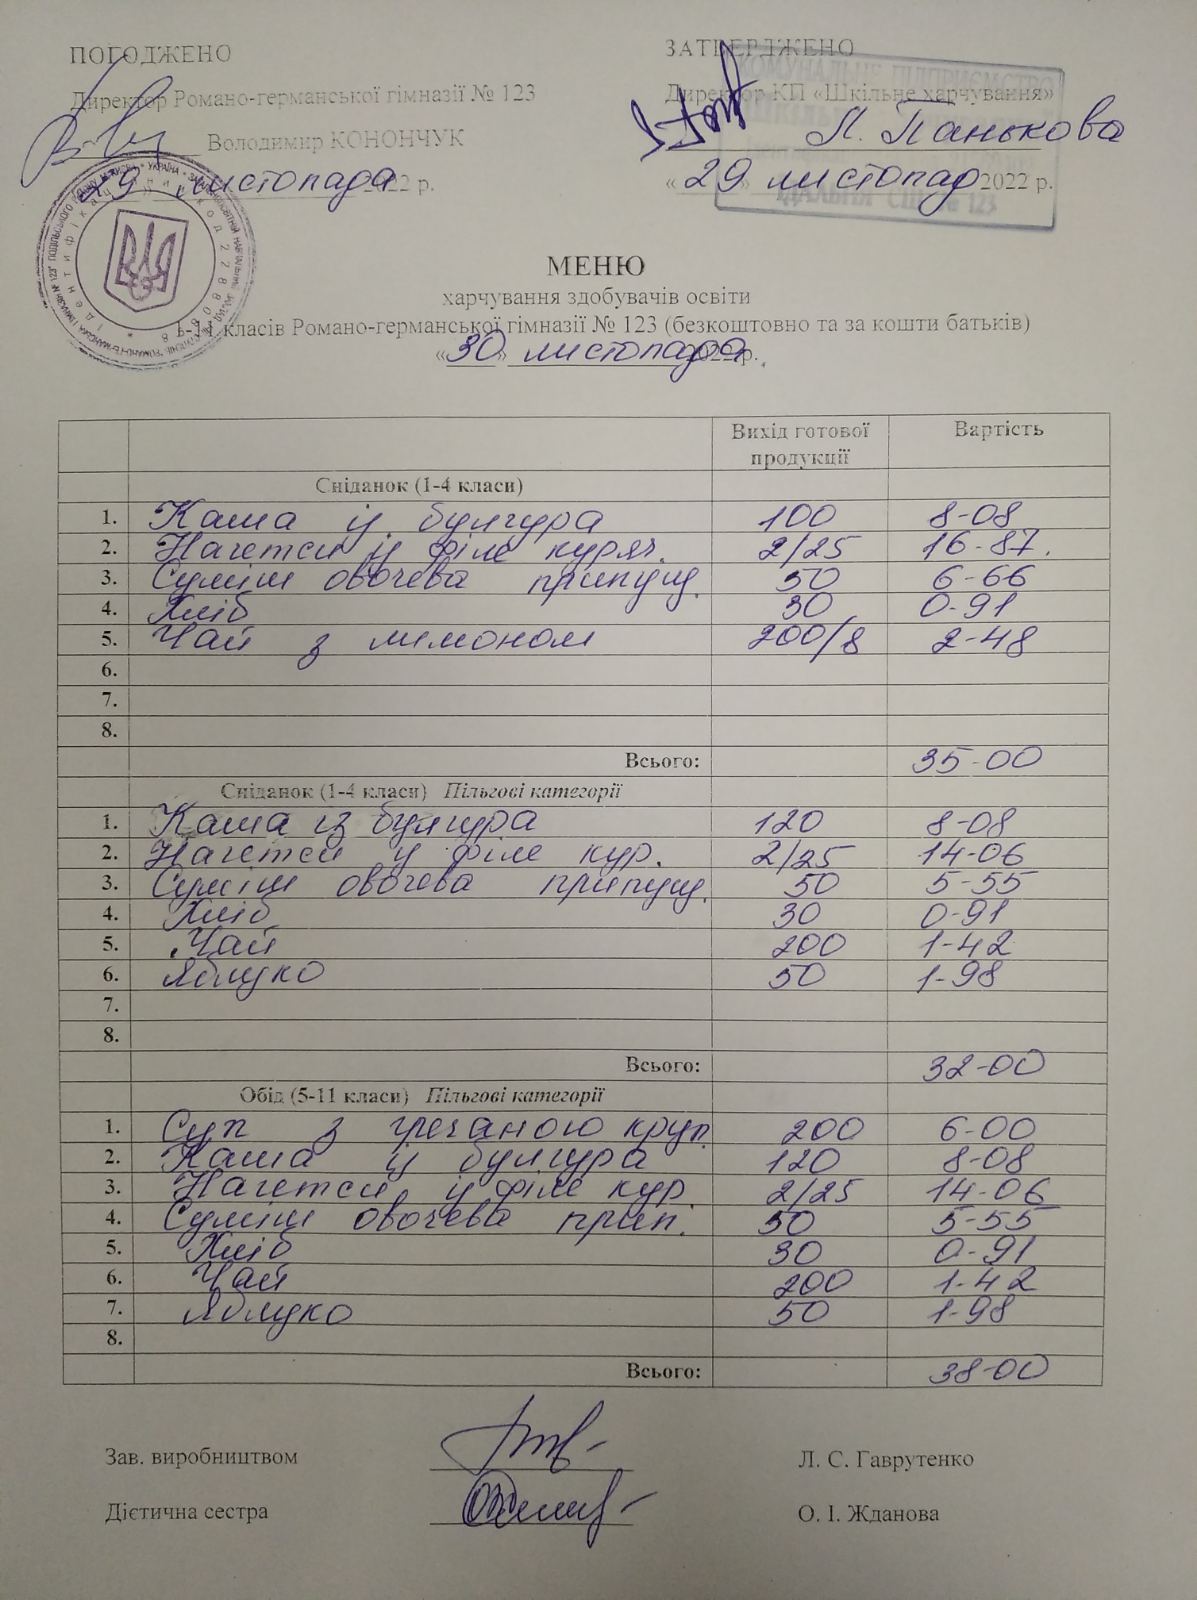 ПОГОДЖЕНО
Директор Романо-германської гімназії № 123
Володимир КОНОНЧУК
29 листопада 2022 р.
ЗАТВЕРДЖЕНО
Директор КП «Шкільне харчування»
Л. Панькова
«29» листопад 2022 р.
КОМУНАЛЬНЕ ПІДПРИЄМСТВО
ЇДАЛЬНЯ СШ № 123
МЕНЮ
харчування здобувачів освіти
1-11 класів Романо-германської гімназії № 123 (безкоштовно та за кошти батьків)
«30» листопада 2022 р.
Вихід готової продукції Вартість
Сніданок (1-4 класи)
1. Каша із булгура 100 8-08
2. Нагетси із філе куряч. 2/25 16-87.
3. Суміш овочева припущ. 50 6-66
4. Хліб 30 0-91
5. Чай з лимоном 200/8 2-48
6.
7.
8.
Всього: 35-00
Сніданок (1-4 класи) Пільгові категорії
1. Каша із булгура 120 8-08
2. Нагетси із філе кур. 2/25 14-06
3. Суміш овочева припущ. 50 5-55
4. Хліб 30 0-91
5. Чай 200 1-42
6. Яблуко 50 1-98
7.
8.
Всього: 32-00
Обід (5-11 класи) Пільгові категорії
1. Суп з гречаною круп. 200 6-00
2. Каша із булгура 120 8-08
3. Нагетси із філе кур. 2/25 14-06
4. Суміш овочева прип. 50 5-55
5. Хліб 30 0-91
6. Чай 200 1-42
7. Яблуко 50 1-98
8.
Всього: 38-00
Зав. виробництвом Л. С. Гаврутенко
Дієтична сестра О. І. Жданова